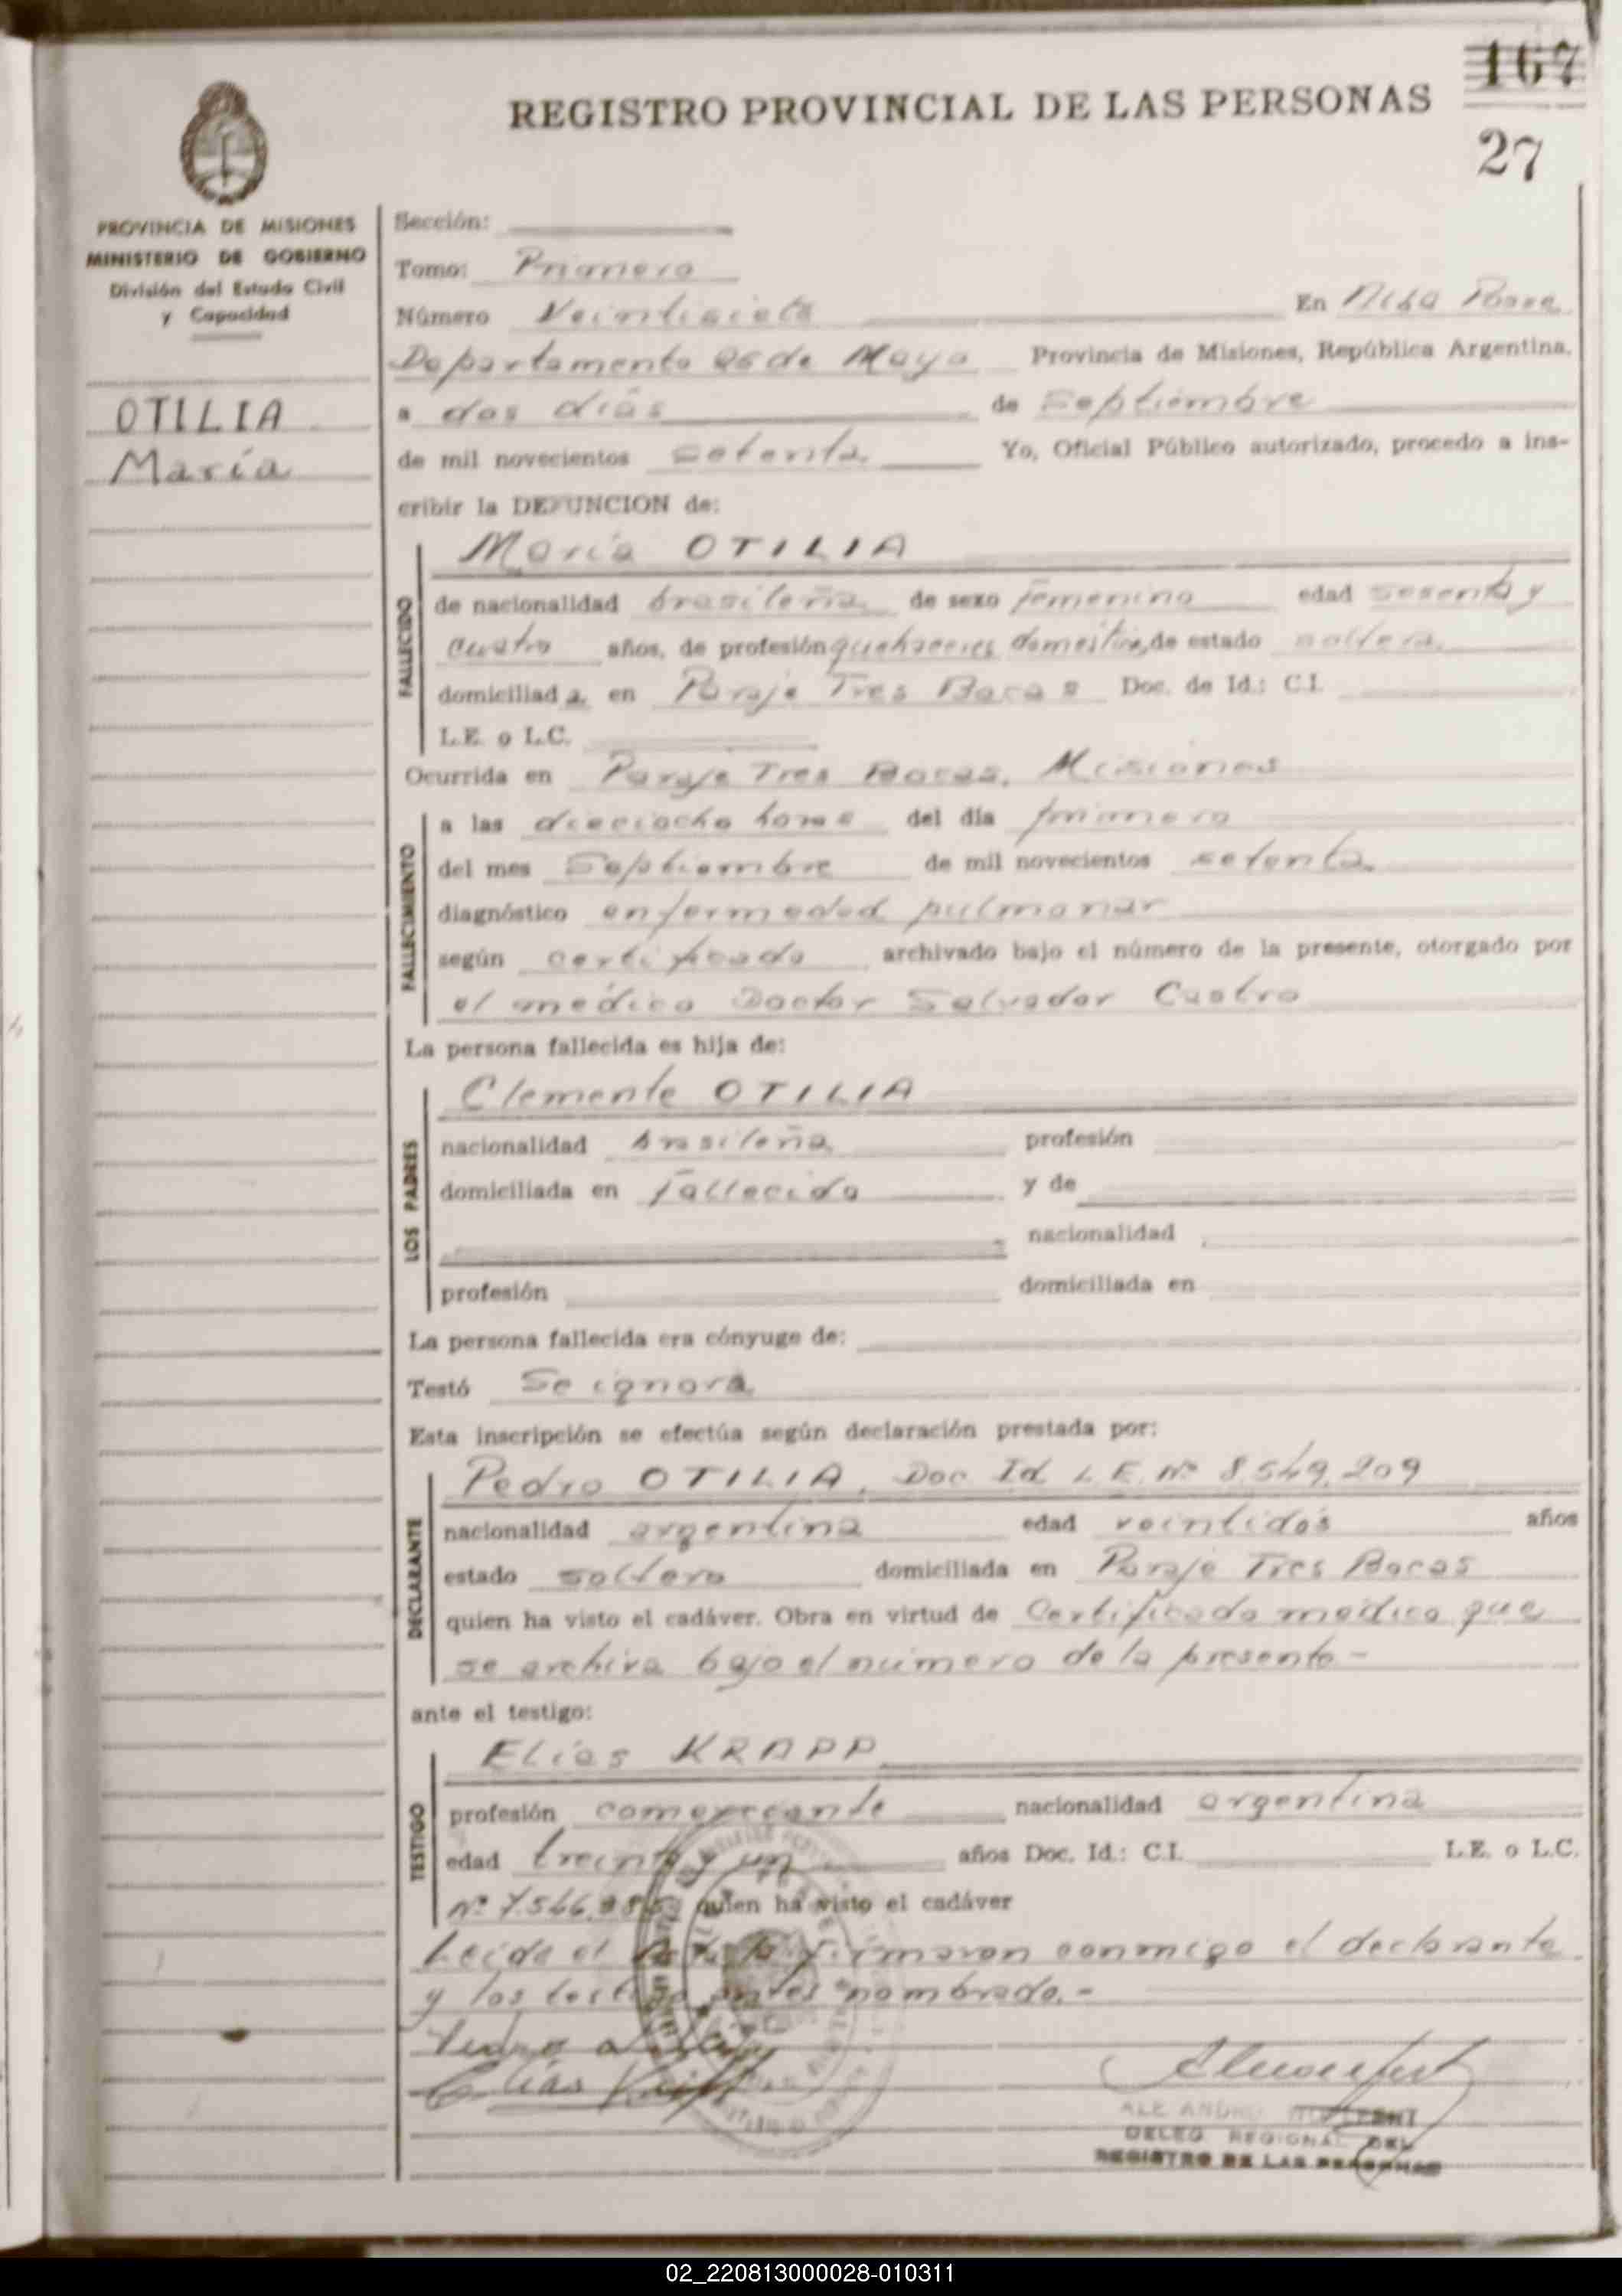 167
REGISTRO PROVINCIAL DE LAS PERSONAS
27
PROVINCIA DE MISIONES
MINISTERIO DE GOBIERNO
División del Estado Civil
y Capacidad
OTILIA
María
Sección:
Tomo: Primero
Número Veintisiete En Alba Posse
Departamento 25 de Mayo Provincia de Misiones, República Argentina,
a dos días de Septiembre
de mil novecientos setenta Yo, Oficial Público autorizado, procedo a ins-
cribir la DEFUNCION de:
María OTILIA
FALLECIDO
de nacionalidad brasileña de sexo femenino edad sesenta y
cuatro años, de profesión quehaceres domésticos, de estado soltera
domiciliad a en Paraje Tres Bocas Doc. de Id.: C.I.
L.E. o L.C.
Ocurrida en Paraje Tres Bocas, Misiones
FALLECIMIENTO
a las dieciocho horas del día primero
del mes Septiembre de mil novecientos setenta
diagnóstico enfermedad pulmonar
según certificado archivado bajo el número de la presente, otorgado por
el médico Doctor Salvador Castro
La persona fallecida es hija de:
LOS PADRES
Clemente OTILIA
nacionalidad brasileña profesión
domiciliada en fallecido y de
nacionalidad
profesión domiciliada en
La persona fallecida era cónyuge de:
Testó Se ignora
Esta inscripción se efectúa según declaración prestada por:
DECLARANTE
Pedro OTILIA, Doc Id L.E. Nº 8.549.209
nacionalidad argentina edad veintidós años
estado soltero domiciliada en Paraje Tres Bocas
quien ha visto el cadáver. Obra en virtud de Certificado médico que
se archiva bajo el número de la presente -
ante el testigo:
TESTIGO
Elías KRAPP
profesión comerciante nacionalidad argentina
edad treinta y un años Doc. Id.: C.I. L.E. o L.C.
Nº 7.566. quien ha visto el cadáver
Leida el acta la firmaron conmigo el declarante
y los testigo antes nombrado.-
Elías
DELEG REGIONAL DEL
REGISTRO DE LAS PERSONAS
02_220813000028-010311